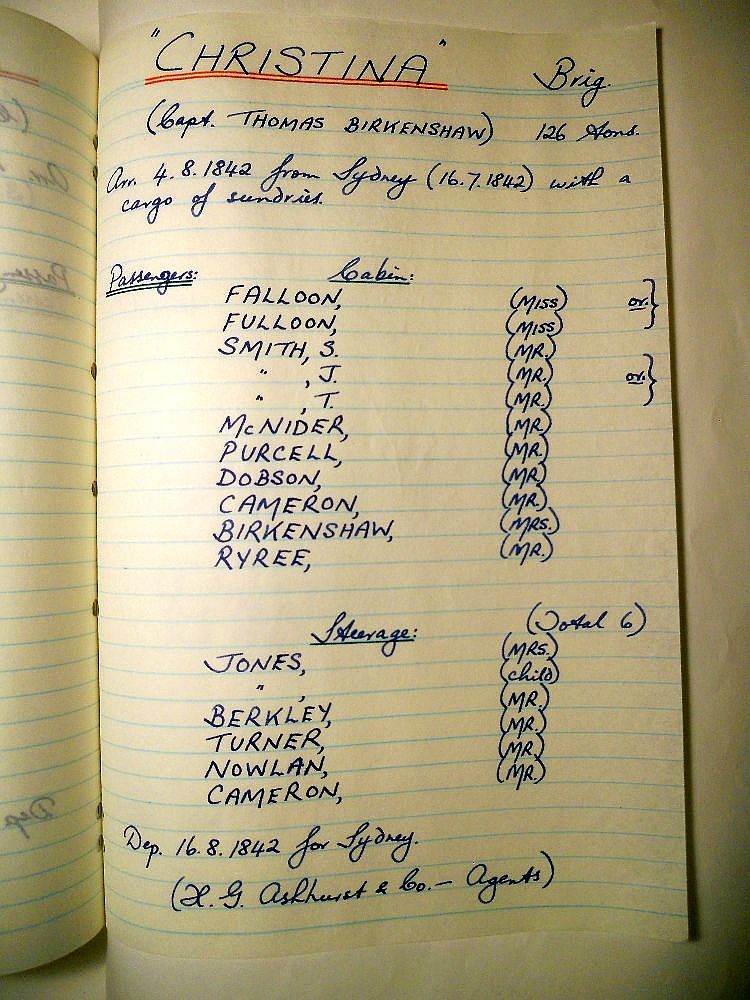 "CHRISTINA" Brig.
(Capt. THOMAS BIRKENSHAW) 126 tons.
Arr. 4.8.1842 from Sydney (16.7.1842) with a
cargo of sundries.
Passengers: Cabin:
FALLOON, (MISS) or }
FULLOON, (MISS)
SMITH, S. (MR.)
" , J. (MR.) or }
" , T. (MR.)
McNIDER, (MR.)
PURCELL, (MR.)
DOBSON, (MR.)
CAMERON, (MR.)
BIRKENSHAW, (MRS.)
RYREE, (MR.)
Steerage: (Total 6)
JONES, (MRS.)
" , (child)
BERKLEY, (MR.)
TURNER, (MR.)
NOWLAN, (MR.)
CAMERON, (MR.)
Dep. 16.8.1842 for Sydney.
(H. G. Ashhurst & Co. – Agents)